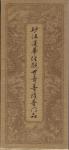 妙法蓮華經觀世音菩薩普門品